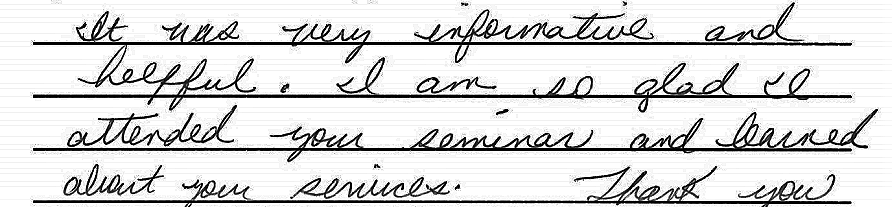 It was very informative and
helpful. I am so glad I
attended your seminar and learned
about your services. Thank you